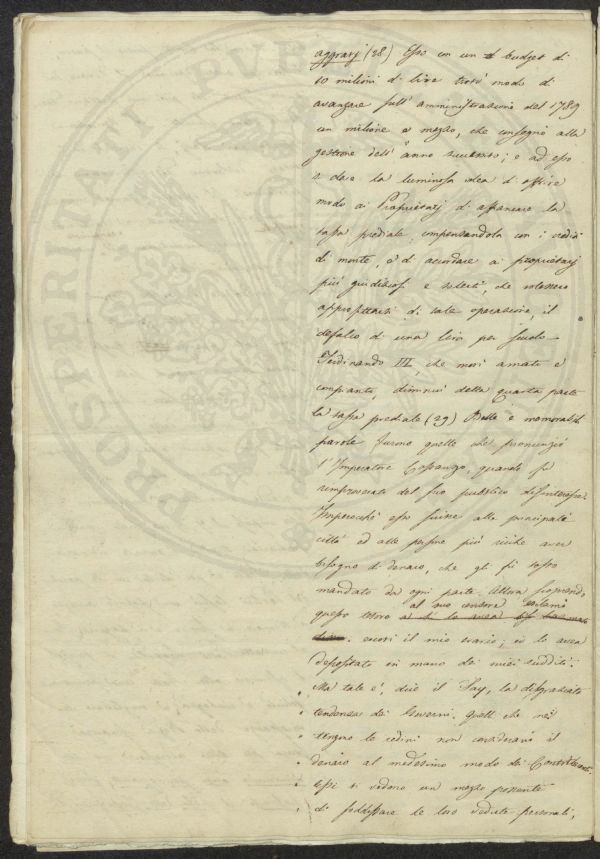 aggravj (28) Esso con un budget di
10 milioni di lire trovò modo di
avanzare sull' amministrazione del 1789
un milione e mezzo, che consegnò alla
gestione dell' anno ; e ad esso
si deve la luminosa idea d' offrire
modo ai Proprietarj di affrancare la
tassa prediale, compensandola con i
di monte, e di accordare ai proprietarj
più giudiziosi e solerti, che volessero
approfittarsi di tale operazione, il
defalco di una lira per scudo
Ferdinando III, che morì amato e
compianto, diminuì della quarta parte
la tassa prediale (29) Belle e memorabili
parole furono quelle che pronunziò
l'Imperatore Costanzo, quando fu
rimproverato del suo pubblico disinteresse.
Imperocchè esso scrisse alle principali
città ed alle persone più ricche aver
bisogno di denaro, che gli fu tosto
mandato da ogni parte. Allora scoprendo
questo tesoro al suo censore esclamò
eccovi il mio erario; io lo avea
depositato in mano dei miei sudditi.
Ma tale è, dice il Say, la disgraziata
tendenza dei Governi. Quelli che ne
tengono le redini non considerano il
denaro al medesimo modo dei Contribuenti.
Essi vi vedono un mezzo potente
di soddisfare le loro vedute personali,
PROSPERITATI PVB